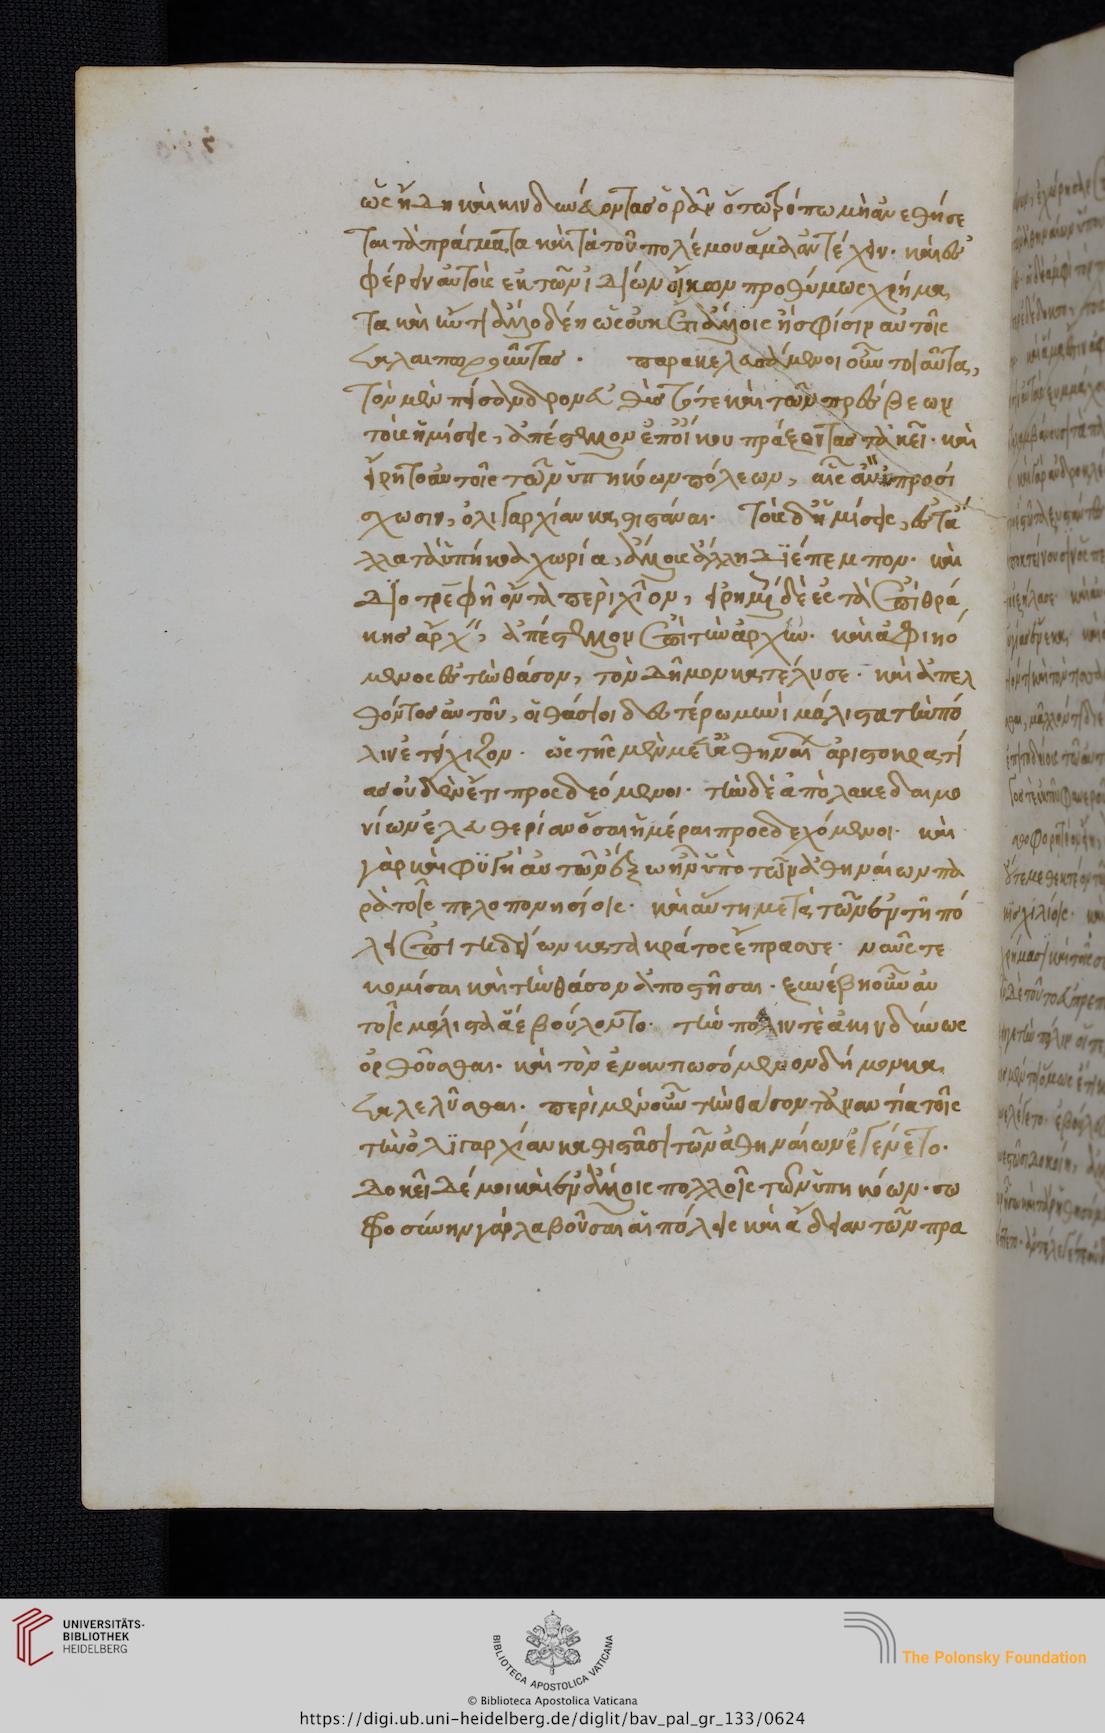 ὡς ἤδη καὶ κινδυνεύοντας ὁρᾶν ὅτῳ τρόπῳ μὴ ἀνεθήσε
ται τὰ πράγματα καὶ τὰ τοῦ πολέμου ἅμα ἀντέχειν. καὶ ἐσ
φέρειν αὐτοὺς ἐκ τῶν ἰδίων οἴκων προθύμως χρήμα
τα καὶ ἤν τι ἄλλο δέῃ ὡς οὐκέτι ἄλλοις ἢ σφίσιν αὐτοῖς
ταλαιπωροῦντας. παρακελευσάμενοι οὖν τοιαῦτα,
τὸν μὲν πείσανδρον εὐθὺς τότε καὶ τῶν πρέσβεων
τοὺς ἡμίσεις, ἀπέστελλον ἐπ' οἴκου πράξοντας τἀκεῖ. καὶ
εἴρητο αὐτοῖς τῶν ὑπηκόων πόλεων, αἷς ἂν προσί
σχωσιν, ὀλιγαρχίαν καθιστάναι. τοὺς δ' ἡμίσεις, ἐς τἆ
λλα τὰ ὑπήκοα χωρία, ἄλλους ἄλλῃ διέπεμπον. καὶ
διοτρεφῆ ὄντα περὶ χῖον, εἰρημένον δὲ ἐς τὰ ἐπὶ θρά
κης ἄρχειν, ἀπέστελλον ἐπὶ τὴν ἀρχήν. καὶ ἀφικό
μενος ἐς τὴν θάσον, τὸν δῆμον κατέλυσε. καὶ ἀπελ
θόντος αὐτοῦ, οἱ θάσιοι δευτέρῳ μηνὶ μάλιστα τὴν πό
λιν ἐτείχιζον. ὡς τῆς μὲν μετ' ἀθηναίων ἀριστοκρατί
ας οὐδὲν ἔτι προσδεόμενοι. τὴν δὲ ἀπὸ λακεδαιμο
νίων ἐλευθερίαν ὅσαι ἡμέραι προσδεχόμενοι. καὶ
γὰρ καὶ φυγὴ αὐτῶν ἔξω ἦν ὑπὸ τῶν ἀθηναίων πα
ρὰ τοῖς πελοποννησίοις. καὶ αὕτη μετὰ τῶν ἐν τῇ πό
λει ἐπιτηδείων κατὰ κράτος ἔπρασσε. ναῦς τε
κομίσαι καὶ τὴν θάσον ἀποστῆσαι. ξυνέβη οὖν αὐ
τοῖς μάλιστα ἃ ἐβούλοντο. τὴν πόλιν τε ἀκινδύνως
ὀρθοῦσθαι. καὶ τὸν ἐναντιωσόμενον δήμον κα
ταλελῦσθαι. περὶ μὲν οὖν τὴν θάσον τἀναντία τοῖς
τὴν ὀλιγαρχίαν καθιστᾶσι τῶν ἀθηναίων ἐγένετο.
δοκεῖ δέ μοι καὶ ἐν ἄλλοις πολλοῖς τῶν ὑπηκόων. σω
φροσύνην γὰρ λαβοῦσαι αἱ πόλεις καὶ ἄδειαν τῶν πρα
UNIVERSITÄTS-
BIBLIOTHEK
HEIDELBERG
BIBLIOTECA APOSTOLICA VATICANA
The Polonsky Foundation
© Biblioteca Apostolica Vaticana
https://digi.ub.uni-heidelberg.de/diglit/bav_pal_gr_133/0624